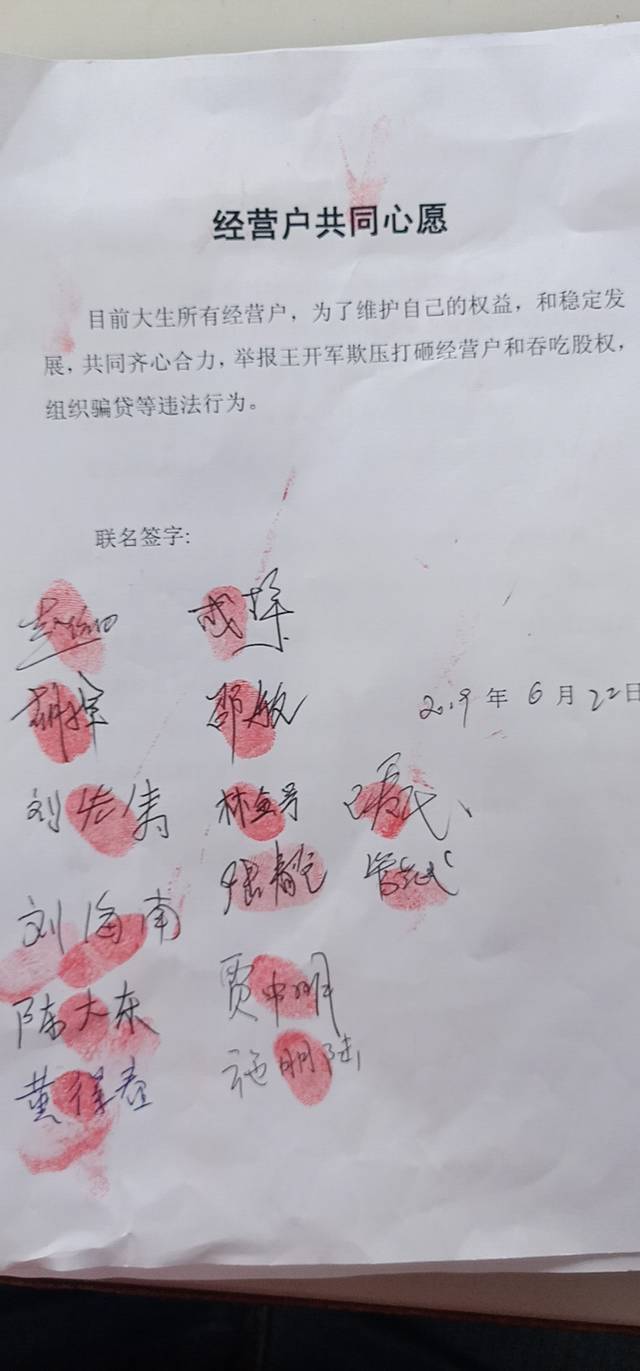 经营户共同心愿
目前大生所有经营户，为了维护自己的权益，和稳定发
展，共同齐心合力，举报王开军欺压打砸经营户和吞吃股权，
组织骗贷等违法行为。
联名签字:
邵敏
2019年6月22日
刘
林
刘海南
张
陈大东
贾中明
黄
施明陆